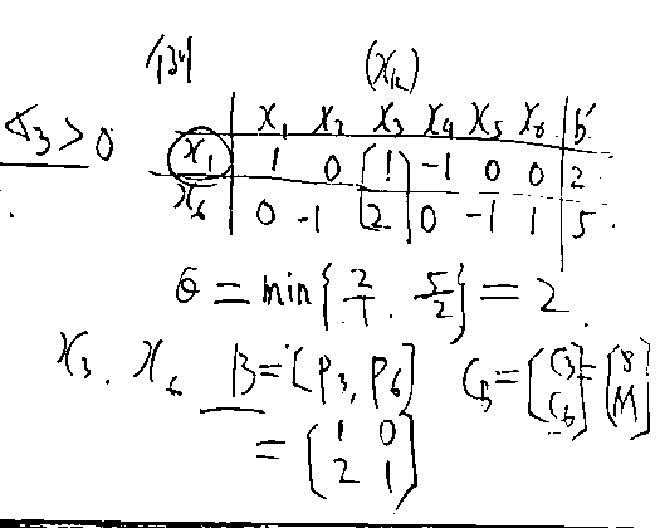 例 (x_k)
σ₃ > 0 | x₁ x₂ x₃ x₄ x₅ x₆ | b'
x₁ | 1 0 [1] -1 0 0 | 2
x₆ | 0 -1 [2] 0 -1 1 | 5
θ = min{2/1, 5/2} = 2
x₃, x₆ B = [P₃, P₆] C_B = [C₃ C₆] = [8 M]
= [1 0
2 1]